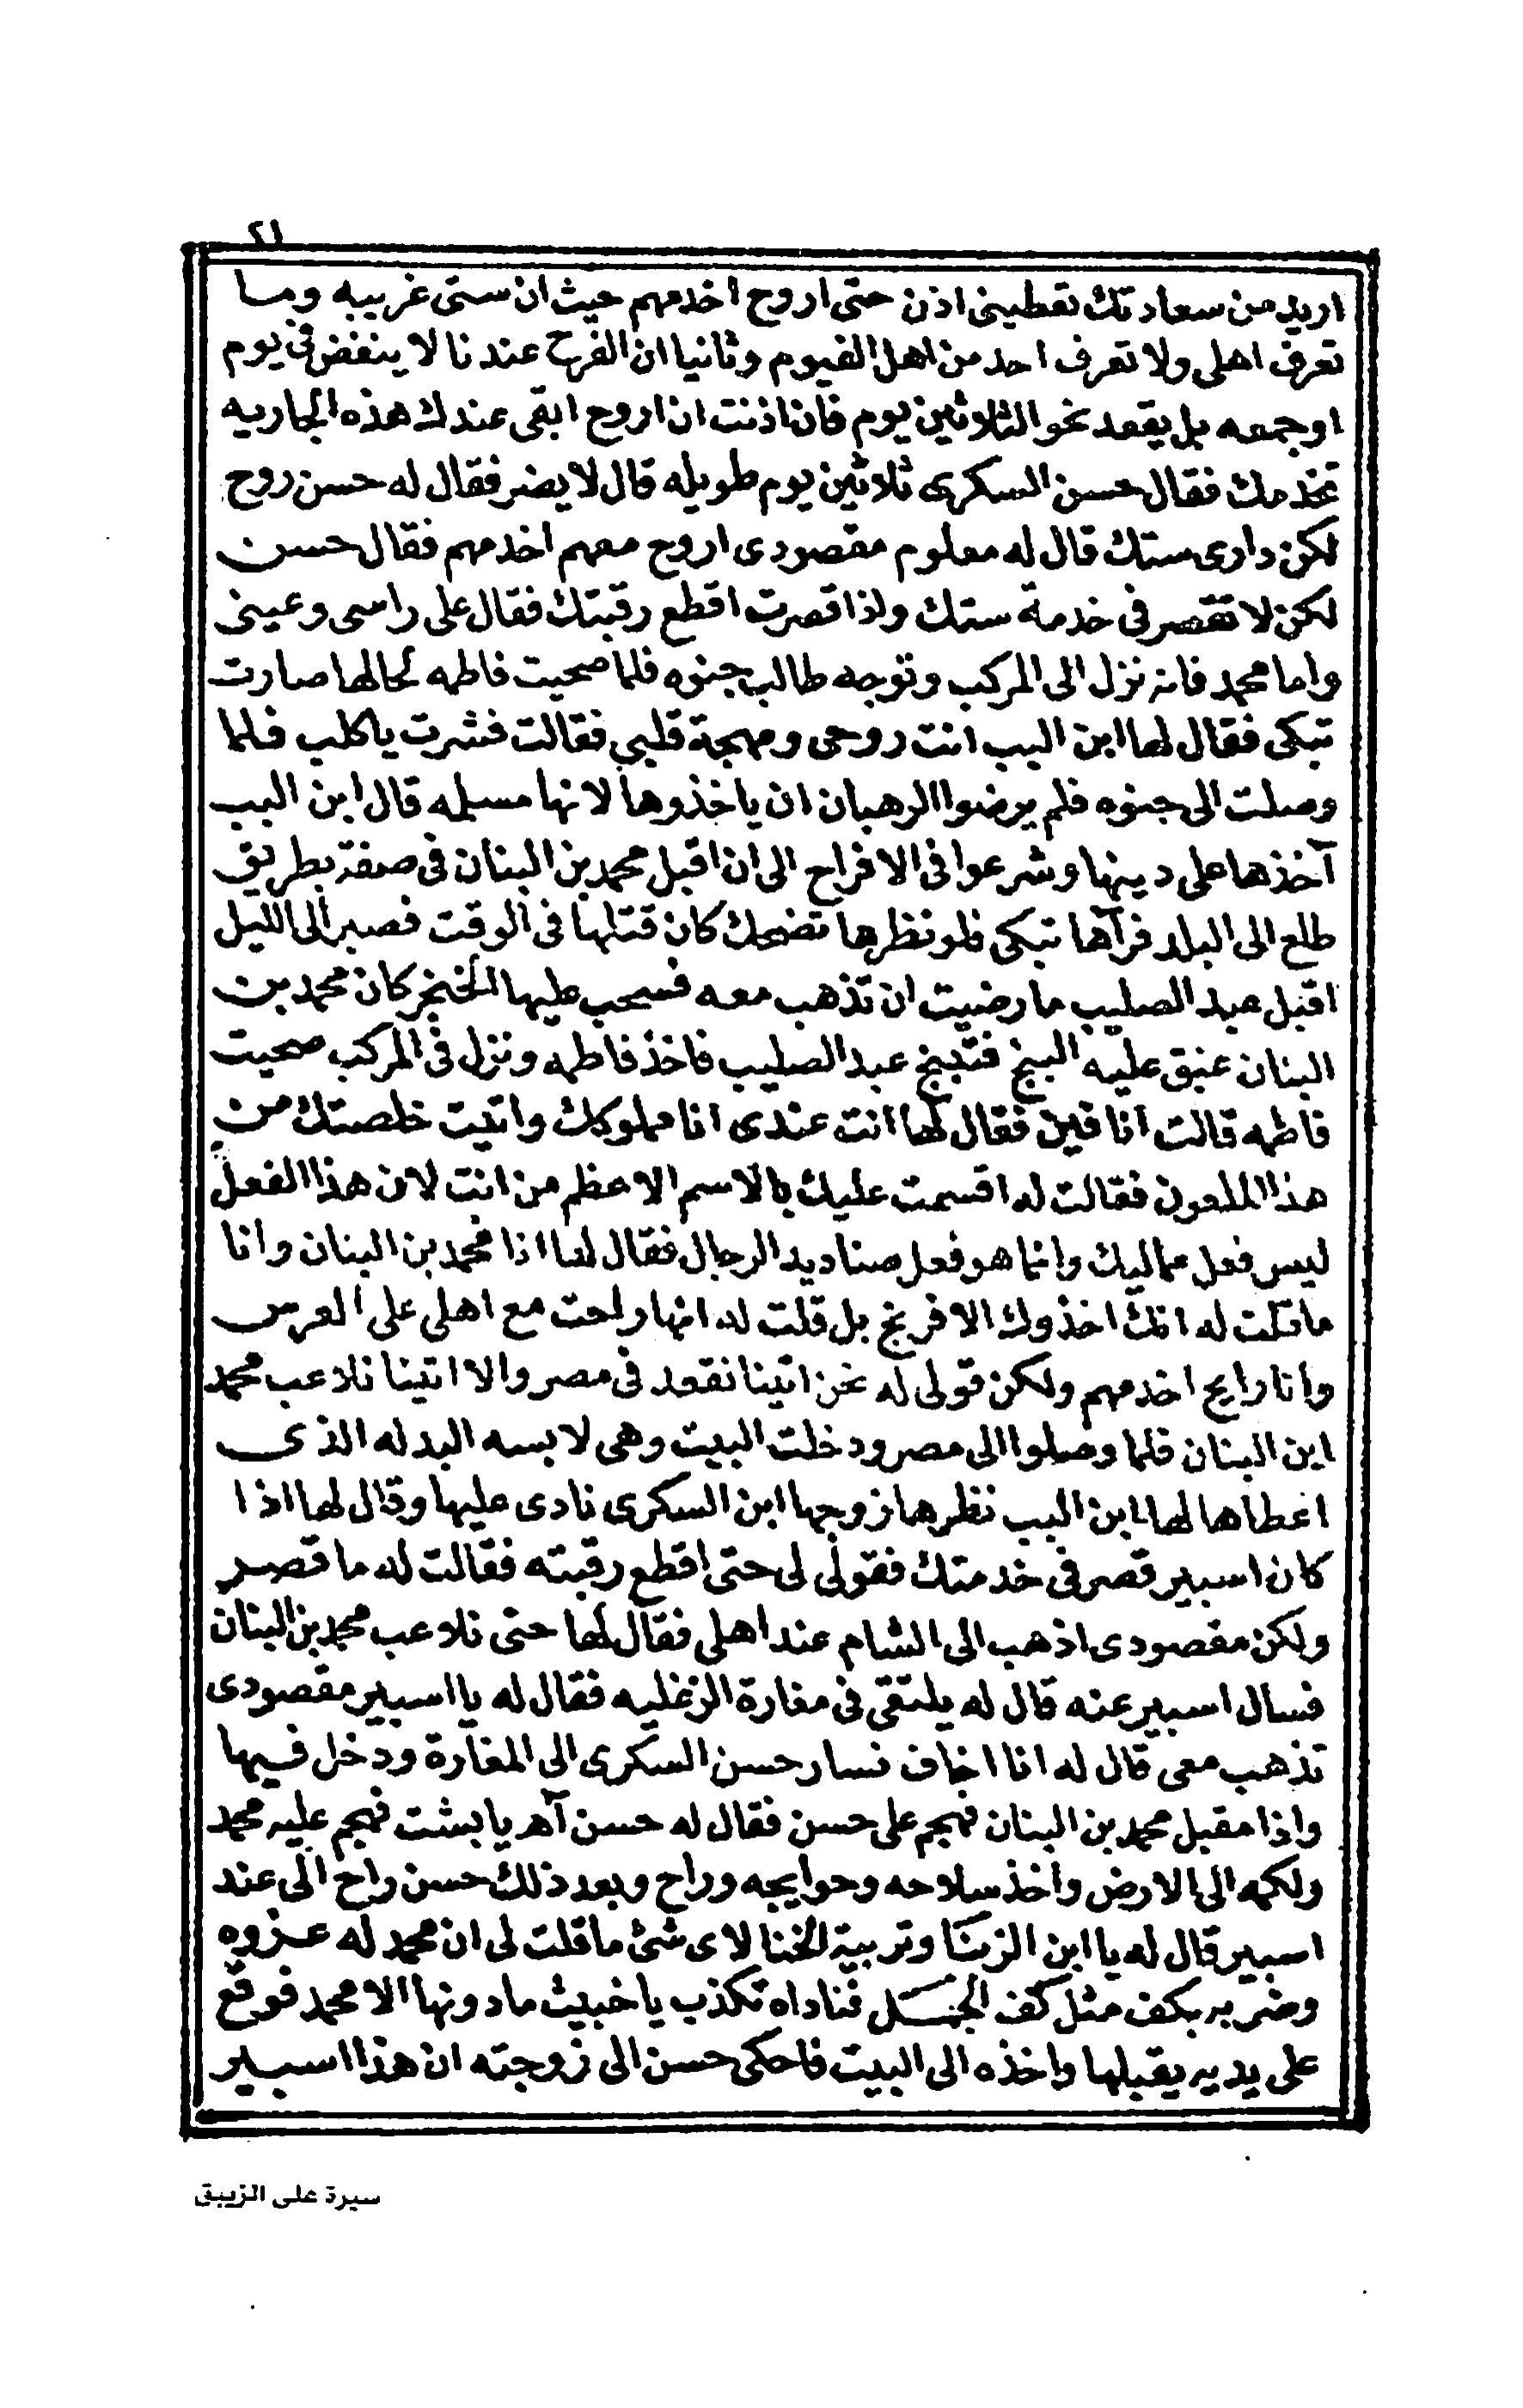 ٢١
اريد من سعادتك تعطينى اذن حتى اروح اخدمهم حيث ان ستى غريبه وما
تعرف اهلى ولا تعرف احد من اهل الفيوم وثانيا ان الفرح عندنا لا ينفض فى يوم
اوجمعه بل يقعد نحو الثلاثين يوم فان اذنت ان اروح ابقى عندك هذه الجاريه
تخدمك فقال حسن السكرى ثلاثين يوم طويله قال لا يضر فقال له حسن روح
لكن دارى ستك قال له معلوم مقصودى اروح معهم اخدمهم فقال حسن
لكن لا تقصر فى خدمة ستك واذا قصرت اقطع رقبتك فقال على راسى وعينى
واما محمد فانه نزل الى المركب وتوجه طالب جنوه فلما صحيت فاطمه لحالها صارت
تبكى فقال لها ابن البب انت روحى ومهجة قلبى فقالت فشرت ياكلب فلما
وصلت الى جنوه فلم يرضوا الرهبان ان ياخذوها لانها مسلمه قال ابن البب
آخذها على دينها وشرعوا فى الافراح الى ان اقبل محمد بن البنان فى صفة بطريق
طلع الى البلد فرآها تبكى فلو نظرها تضحك كان قتلها فى الوقت فصبر الى الليل
اقبل عبد الصليب مارضيت ان تذهب معه فسحب عليها الخنجر كان محمد بن
البنان عبق عليه البنج فتبنج عبد الصليب فاخذ فاطمه ونزل فى المركب صحيت
فاطمه قالت انا فين فقال لها انت عندى انا مملوكك واتيت خلصتك من
هذا الملعون فقالت له اقسمت عليك بالاسم الاعظم من انت لان هذا الفعل
ليس فعل مماليك وانما هو فعل صناديد الرجال فقال لها اذا محمد بن البنان وانا
ماقلت له انك اخذوك الافرنج بل قلت له انها راحت مع اهلى على العرس
وانا رايح اخدمهم ولكن قولى له نحن اتينا نقعد فى مصر والا اتينا نلاعب محمد
ابن البنان فلما وصلوا الى مصر ودخلت البيت وهى لابسه البدله الذى
اعطاها لها ابن البب نظرها زوجها ابن السكرى نادى عليها وقال لها اذا
كان اسبير قصر فى خدمتك فقولى لى حتى اقطع رقبته فقالت له ما قصر
ولكن مقصودى اذهب الى الشام عند اهلى فقال لها حتى نلاعب محمد بن البنان
فسال اسبير عنه قال له يلتقى فى مغارة الزغليه فقال له يا اسبير مقصودى
تذهب معى قال له انا اخاف فسار حسن السكرى الى المغارة ودخل فيها
واذا مقبل محمد بن البنان فهجم على حسن فقال له حسن آهر يا بشت فهجم عليه محمد
ولكمه الى الارض واخذ سلاحه وحوايجه وراح وبعد ذلك حسن راح الى عند
اسبير قال له يا ابن الزنا وتربية الخنا لاى شئ ماقلت لى ان محمد له عزوه
وضربه بكف مثل كف الجمل فناداه تكذب يا خبيث مادونها الا محمد فوقع
على يديه يقبلها واخذه الى البيت فاحكى حسن الى زوجته ان هذا اسبير
سيرة على الزيبق